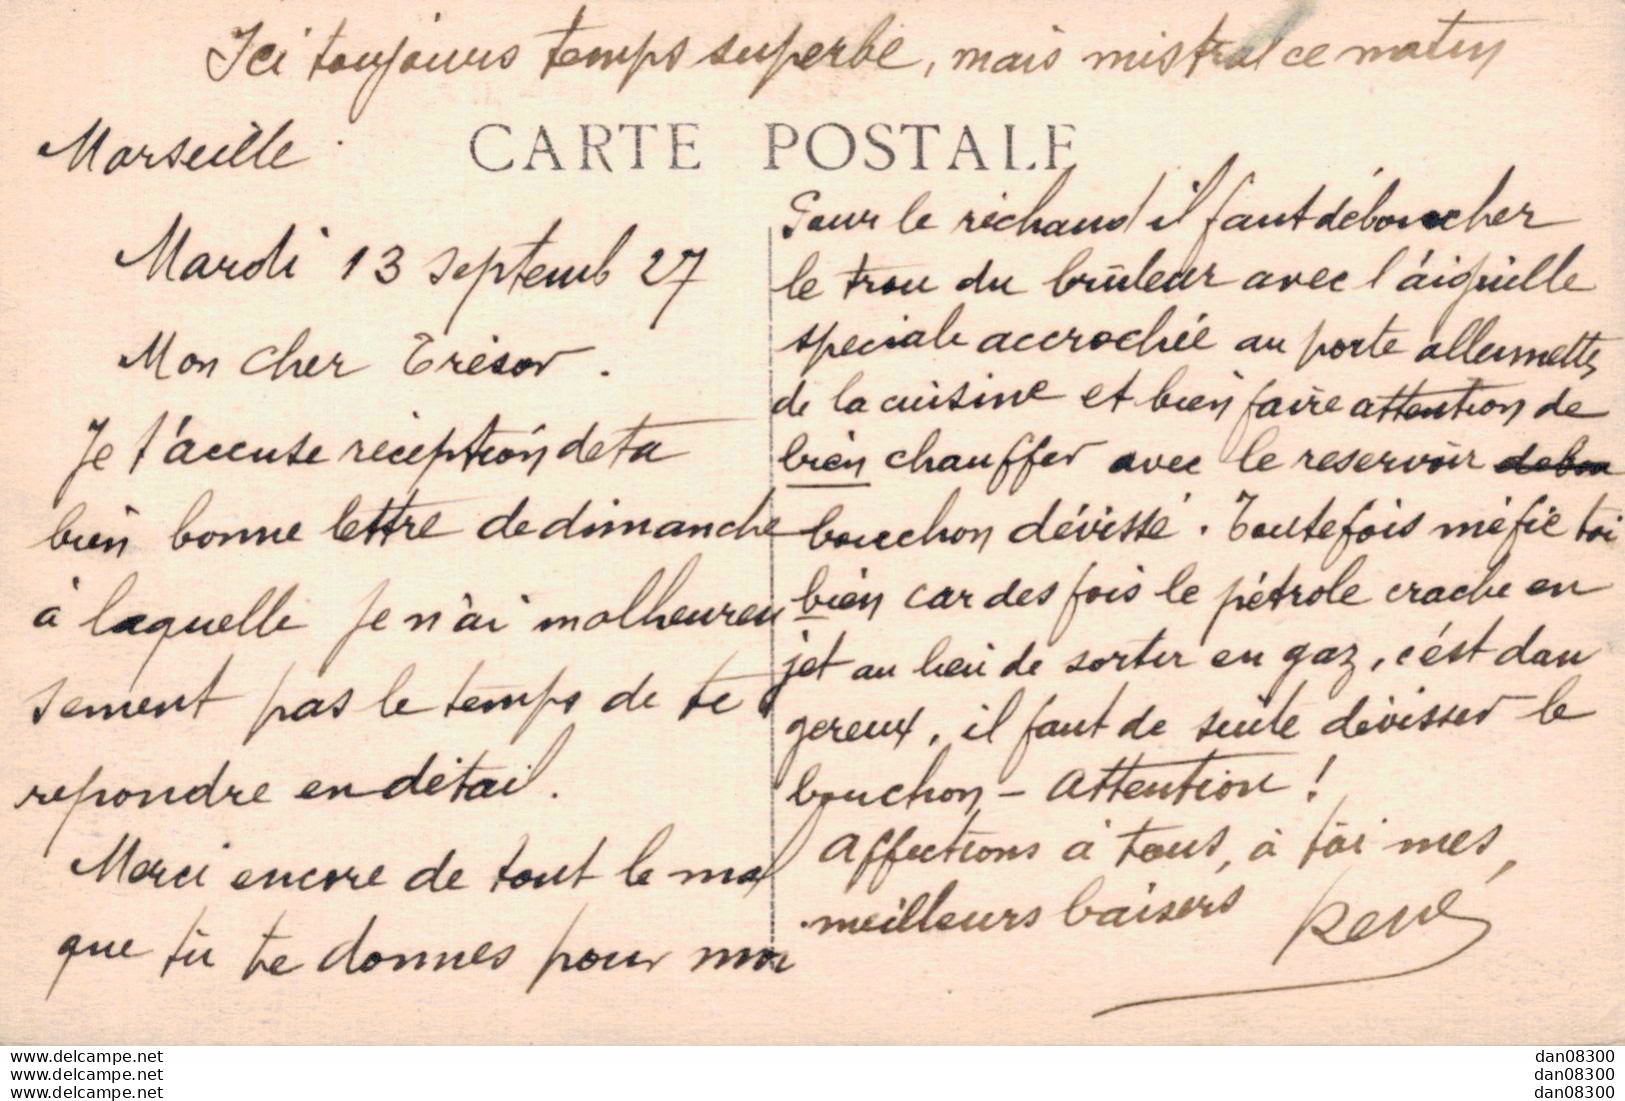 Ici toujours temps superbe, mais mistral ce matin
CARTE POSTALE
Marseille
Mardi 13 Septemb 27
Mon cher Trésor.
Je t'accuse réception de ta
bien bonne lettre de dimanche
à laquelle je n'ai malheureu
sement pas le temps de te
repondre en détail.
Merci encore de tout le mal
que tu te donnes pour moi
Pour le réchaud il faut déboucher
le trou du brûleur avec l'aiguille
speciale accrochée au porte allumettes
de la cuisine et bien faire attention de
bien chauffer avec le reservoir debou
bouchon dévissé. Toutefois méfie toi
bien car des fois le pétrole crache en
jet au lieu de sortir en gaz, c'est dan
gereux, il faut de suite dévisser le
bouchon - Attention !
Affections à tous, à toi mes
meilleurs baisers René
www.delcampe.net
www.delcampe.net
www.delcampe.net
dan08300
dan08300
dan08300